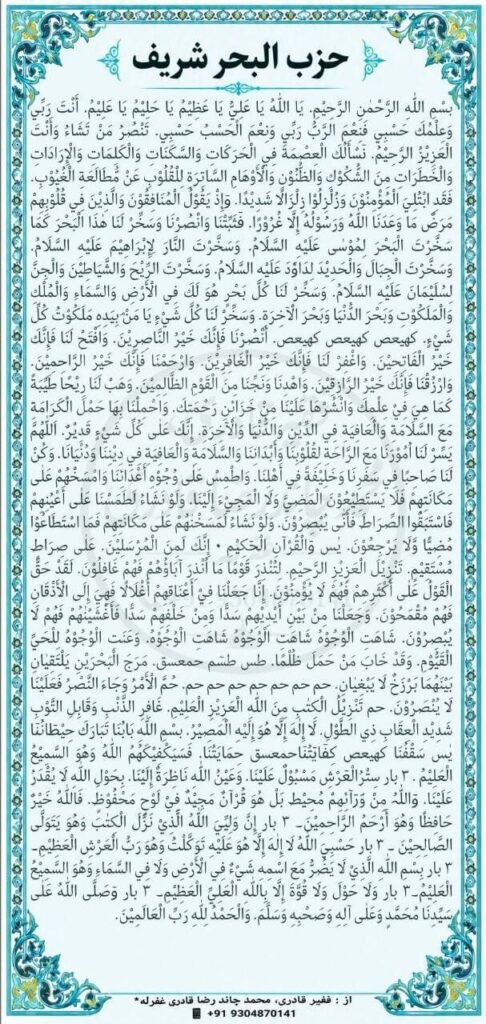 حزب البحر شریف
بِسْمِ اللهِ الرَّحْمٰنِ الرَّحِيْمِ. يَا اَللهُ يَا عَلِيُّ يَا عَظِيْمُ يَا حَلِيْمُ يَا عَلِيْمُ. أَنْتَ رَبِّيْ
وَعِلْمُكَ حَسْبِيْ فَنِعْمَ الرَّبُّ رَبِّيْ وَنِعْمَ الْحَسْبُ حَسْبِيْ. تَنْصُرُ مَنْ تَشَاءُ وَأَنْتَ
الْعَزِيْزُ الرَّحِيْمُ. نَسْأَلُكَ الْعِصْمَةَ فِي الْحَرَكَاتِ وَالسَّكَنَاتِ وَالْكَلِمَاتِ وَالْإِرَادَاتِ
وَالْخَطَرَاتِ مِنَ الشُّكُوْكِ وَالظُّنُوْنِ وَالْأَوْهَامِ السَّاتِرَةِ لِلْقُلُوْبِ عَنْ مُطَالَعَةِ الْغُيُوْبِ.
فَقَدِ ابْتُلِيَ الْمُؤْمِنُوْنَ وَزُلْزِلُوْا زِلْزَالًا شَدِيْدًا. وَإِذْ يَقُوْلُ الْمُنَافِقُوْنَ وَالَّذِيْنَ فِيْ قُلُوْبِهِمْ
مَرَضٌ مَا وَعَدَنَا اللهُ وَرَسُوْلُهُ إِلَّا غُرُوْرًا. فَثَبِّتْنَا وَانْصُرْنَا وَسَخِّرْ لَنَا هٰذَا الْبَحْرَ كَمَا
سَخَّرْتَ الْبَحْرَ لِمُوْسٰى عَلَيْهِ السَّلَامُ. وَسَخَّرْتَ النَّارَ لِإِبْرَاهِيْمَ عَلَيْهِ السَّلَامُ.
وَسَخَّرْتَ الْجِبَالَ وَالْحَدِيْدَ لِدَاوٗدَ عَلَيْهِ السَّلَامُ. وَسَخَّرْتَ الرِّيْحَ وَالشَّيَاطِيْنَ وَالْجِنَّ
لِسُلَيْمَانَ عَلَيْهِ السَّلَامُ. وَسَخِّرْ لَنَا كُلَّ بَحْرٍ هُوَ لَكَ فِي الْأَرْضِ وَالسَّمَاءِ وَالْمُلْكِ
وَالْمَلَكُوْتِ وَبَحْرَ الدُّنْيَا وَبَحْرَ الْآخِرَةِ. وَسَخِّرْ لَنَا كُلَّ شَيْءٍ يَا مَنْ بِيَدِهِ مَلَكُوْتُ كُلِّ
شَيْءٍ. كهيعص كهيعص كهيعص. أُنْصُرْنَا فَإِنَّكَ خَيْرُ النَّاصِرِيْنَ. وَافْتَحْ لَنَا فَإِنَّكَ
خَيْرُ الْفَاتِحِيْنَ. وَاغْفِرْ لَنَا فَإِنَّكَ خَيْرُ الْغَافِرِيْنَ. وَارْحَمْنَا فَإِنَّكَ خَيْرُ الرَّاحِمِيْنَ.
وَارْزُقْنَا فَإِنَّكَ خَيْرُ الرَّازِقِيْنَ. وَاهْدِنَا وَنَجِّنَا مِنَ الْقَوْمِ الظَّالِمِيْنَ. وَهَبْ لَنَا رِيْحًا طَيِّبَةً
كَمَا هِيَ فِيْ عِلْمِكَ وَانْشُرْهَا عَلَيْنَا مِنْ خَزَائِنِ رَحْمَتِكَ. وَاحْمِلْنَا بِهَا حَمْلَ الْكَرَامَةِ
مَعَ السَّلَامَةِ وَالْعَافِيَةِ فِي الدِّيْنِ وَالدُّنْيَا وَالْآخِرَةِ. إِنَّكَ عَلٰى كُلِّ شَيْءٍ قَدِيْرٌ. اَللّٰهُمَّ
يَسِّرْ لَنَا أُمُوْرَنَا مَعَ الرَّاحَةِ لِقُلُوْبِنَا وَأَبْدَانِنَا وَالسَّلَامَةِ وَالْعَافِيَةِ فِي دِيْنِنَا وَدُنْيَانَا. وَكُنْ
لَنَا صَاحِبًا فِي سَفَرِنَا وَخَلِيْفَةً فِي أَهْلِنَا. وَاطْمِسْ عَلٰى وُجُوْهِ أَعْدَائِنَا وَامْسَخْهُمْ عَلٰى
مَكَانَتِهِمْ فَلَا يَسْتَطِيْعُوْنَ الْمُضِيَّ وَلَا الْمَجِيْءَ إِلَيْنَا. وَلَوْ نَشَاءُ لَطَمَسْنَا عَلٰى أَعْيُنِهِمْ
فَاسْتَبَقُوا الصِّرَاطَ فَأَنّٰى يُبْصِرُوْنَ. وَلَوْ نَشَاءُ لَمَسَخْنٰهُمْ عَلٰى مَكَانَتِهِمْ فَمَا اسْتَطَاعُوْا
مُضِيًّا وَّلَا يَرْجِعُوْنَ. يٰس وَالْقُرْآنِ الْحَكِيْمِ ۰ إِنَّكَ لَمِنَ الْمُرْسَلِيْنَ. عَلٰى صِرَاطٍ
مُسْتَقِيْمٍ. تَنْزِيْلَ الْعَزِيْزِ الرَّحِيْمِ. لِتُنْذِرَ قَوْمًا مَا أُنْذِرَ آبَاؤُهُمْ فَهُمْ غَافِلُوْنَ. لَقَدْ حَقَّ
الْقَوْلُ عَلٰى أَكْثَرِهِمْ فَهُمْ لَا يُؤْمِنُوْنَ. إِنَّا جَعَلْنَا فِيْ أَعْنَاقِهِمْ أَغْلَالًا فَهِيَ إِلَى الْأَذْقَانِ
فَهُمْ مُقْمَحُوْنَ. وَجَعَلْنَا مِنْ بَيْنِ أَيْدِيْهِمْ سَدًّا وَمِنْ خَلْفِهِمْ سَدًّا فَأَغْشَيْنٰهُمْ فَهُمْ لَا
يُبْصِرُوْنَ. شَاهَتِ الْوُجُوْهُ شَاهَتِ الْوُجُوْهُ شَاهَتِ الْوُجُوْهُ. وَعَنَتِ الْوُجُوْهُ لِلْحَيِّ
الْقَيُّوْمِ. وَقَدْ خَابَ مَنْ حَمَلَ ظُلْمًا. طس طسم حمعسق. مَرَجَ الْبَحْرَيْنِ يَلْتَقِيَانِ
بَيْنَهُمَا بَرْزَخٌ لَا يَبْغِيَانِ. حم حم حم حم حم حم حم. حُمَّ الْأَمْرُ وَجَاءَ النَّصْرُ فَعَلَيْنَا
لَا يُنْصَرُوْنَ. حم تَنْزِيْلُ الْكِتٰبِ مِنَ اللهِ الْعَزِيْزِ الْعَلِيْمِ. غَافِرِ الذَّنْبِ وَقَابِلِ التَّوْبِ
شَدِيْدِ الْعِقَابِ ذِي الطَّوْلِ. لَا إِلٰهَ إِلَّا هُوَ إِلَيْهِ الْمَصِيْرُ. بِسْمِ اللهِ بَابُنَا تَبَارَكَ حِيْطَانُنَا
يٰس سَقْفُنَا كهيعص كِفَايَتُنَا حمعسق حِمَايَتُنَا. فَسَيَكْفِيْكَهُمُ اللهُ وَهُوَ السَّمِيْعُ
الْعَلِيْمُ . ۳ بار سِتْرُ الْعَرْشِ مَسْبُوْلٌ عَلَيْنَا. وَعَيْنُ اللهِ نَاظِرَةٌ إِلَيْنَا. بِحَوْلِ اللهِ لَا يُقْدَرُ
عَلَيْنَا. وَاللهُ مِنْ وَرَائِهِمْ مُحِيْطٌ بَلْ هُوَ قُرْآنٌ مَجِيْدٌ فِيْ لَوْحٍ مَحْفُوْظٍ. فَاللهُ خَيْرٌ
حَافِظًا وَهُوَ أَرْحَمُ الرَّاحِمِيْنَ۔ ۳ بار إِنَّ وَلِيِّيَ اللهُ الَّذِيْ نَزَّلَ الْكِتٰبَ وَهُوَ يَتَوَلَّى
الصَّالِحِيْنَ ۔ ۳ بار حَسْبِيَ اللهُ لَا إِلٰهَ إِلَّا هُوَ عَلَيْهِ تَوَكَّلْتُ وَهُوَ رَبُّ الْعَرْشِ الْعَظِيْمِ۔
۳ بار بِسْمِ اللهِ الَّذِيْ لَا يَضُرُّ مَعَ اسْمِهِ شَيْءٌ فِي الْأَرْضِ وَلَا فِي السَّمَاءِ وَهُوَ السَّمِيْعُ
الْعَلِيْمُ۔ ۳ بار وَلَا حَوْلَ وَلَا قُوَّةَ إِلَّا بِاللهِ الْعَلِيِّ الْعَظِيْمِ۔ ۳ بار وَصَلَّى اللهُ عَلٰى
سَيِّدِنَا مُحَمَّدٍ وَعَلٰى آلِهِ وَصَحْبِهِ وَسَلَّمَ. وَالْحَمْدُ لِلهِ رَبِّ الْعَالَمِيْنَ.
از : فقیر قادری، محمد چاند رضا قادری غفرله*
+91 9304870141